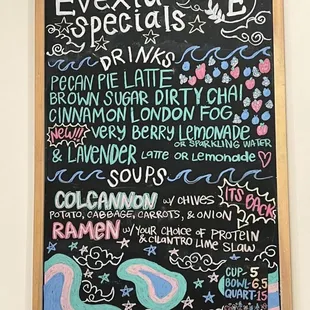 Evexia
specials
E
DRINKS
PECAN PIE LATTE
BROWN SUGAR DIRTY CHAI
CINNAMON LONDON FOG
NEW!! VERY BERRY LEMONADE
OR SPARKLING WATER
& LAVENDER LATTE OR LEMONADE
SOUPS
COLCANNON w/ CHIVES
ITS BACK
POTATO, CABBAGE, CARROTS, & ONION
RAMEN w/ YOUR CHOICE OF PROTEIN
& CILANTRO LIME SLAW
CUP - 5
BOWL - 6.5
QUART - 15